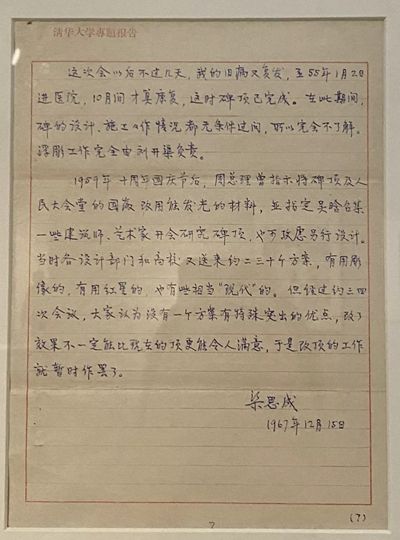 清华大学專題报告
这次会以后不过几天，我的旧病又复发，至55年1月2日
进医院，10月间才算康复，这时碑顶已完成。在此期间，
碑的设计、施工工作情况都无条件过问，所以完全不了解。
浮雕工作完全由刘开渠负责。
1959年十周年国庆节后，周总理曾指示将碑顶及人
民大会堂的国徽改用能发光的材料，並指定吴晗召集
一些建筑师、艺术家开会研究碑顶，也可考虑另行设计。
当时各设计部门和高校又送来约二三十个方案，有用彫
像的，有用红星的，也有些担当“现代”的。但经过约三四
次会议，大家认为没有一个方案有特殊突出的优点，改了
效果不一定能比现在的顶更能令人满意，于是改顶的工作
就暂时作罢了。
梁思成
1967年12月15日
(7)
7